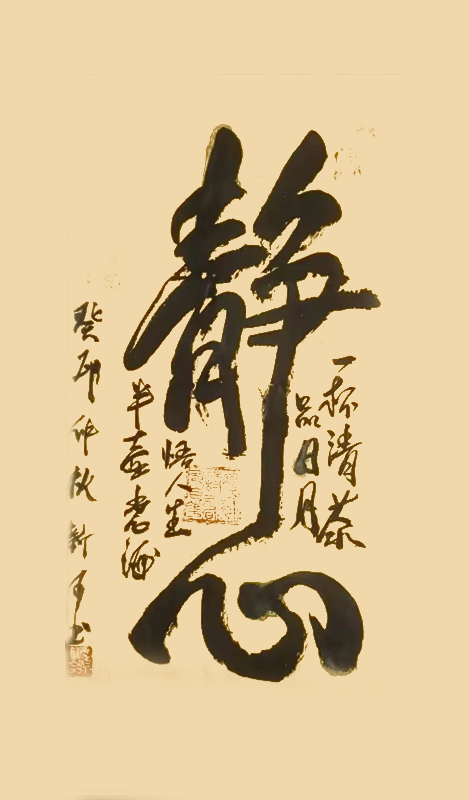 靜心
一杯清茶
品日月
半壺老酒
悟人生
癸卯仲秋新玉書